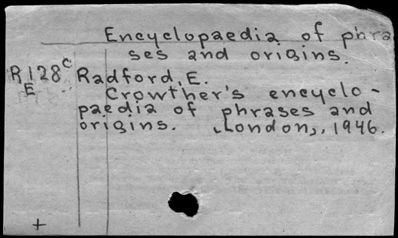 Encyclopaedia of phra
ses and origins.
R128c Radford, E.
E Crowther's encyclo-
paedia of phrases and
origins. London, 1946.
+